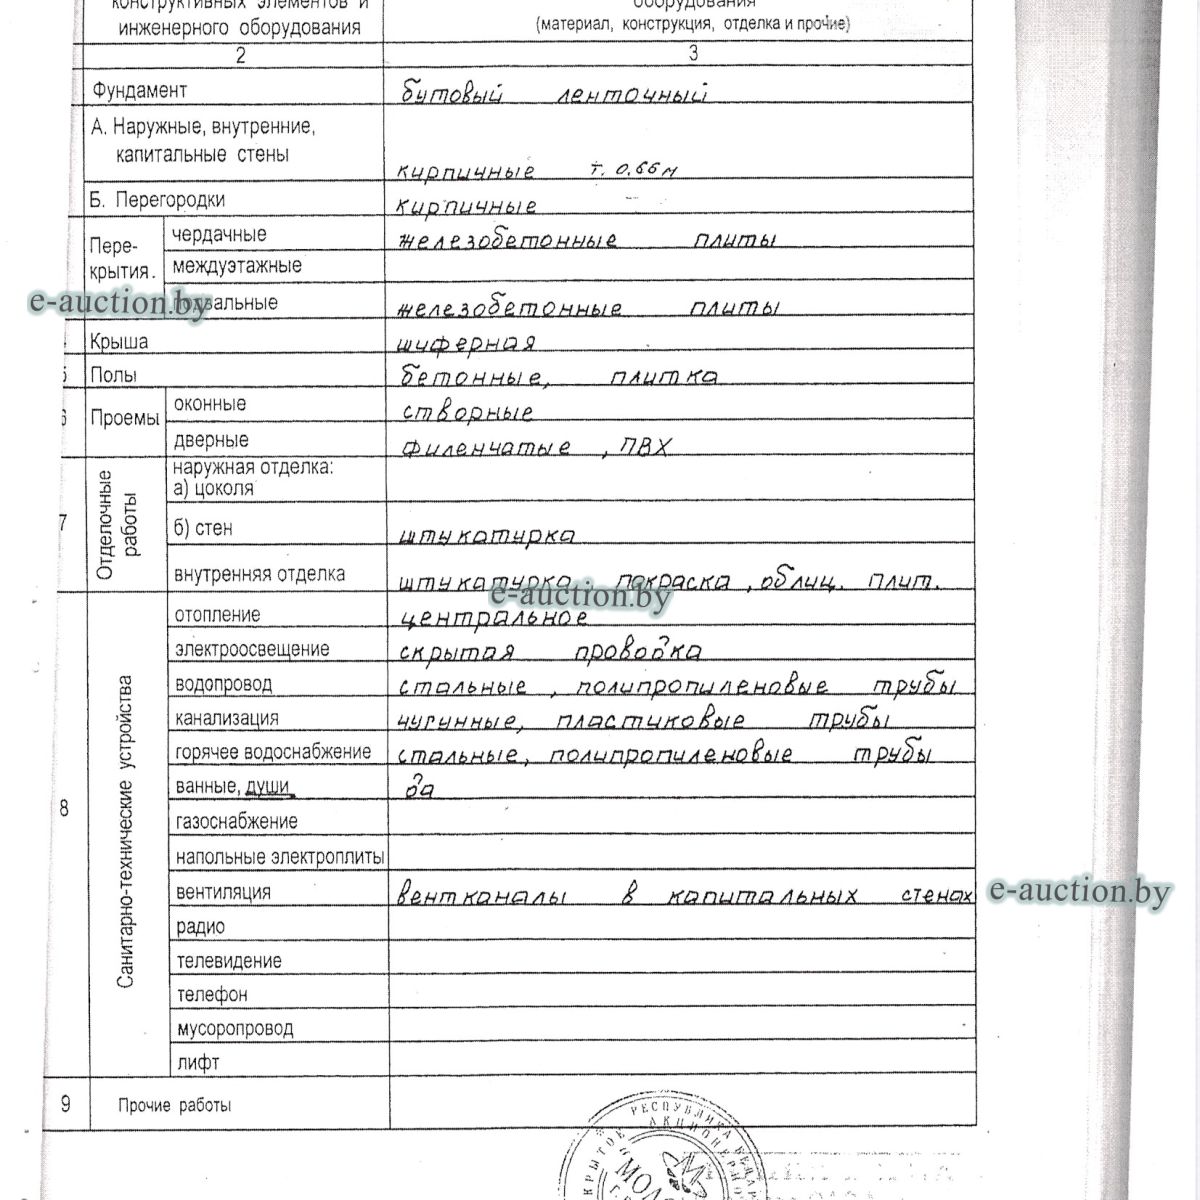 конструктивных элементов и
инженерного оборудования
оборудования
(материал, конструкция, отделка и прочие)
2
3
Фундамент
бутовый ленточный
А. Наружные, внутренние,
капитальные стены
кирпичные т. 0,66м
Б. Перегородки
кирпичные
Пере-
крытия.
чердачные
железобетонные плиты
междуэтажные
e-auction.by
подвальные
железобетонные плиты
Крыша
шиферная
5
Полы
бетонные, плитка
6
Проемы
оконные
створные
дверные
филенчатые , ПВХ
7
Отделочные
работы
наружная отделка:
а) цоколя
б) стен
штукатурка
внутренняя отделка
штукатурка, покраска, облиц. плит.
e-auction.by
8
Санитарно-технические устройства
отопление
центральное
электроосвещение
скрытая проводка
водопровод
стальные , полипропиленовые трубы
канализация
чугунные, пластиковые трубы
горячее водоснабжение
стальные, полипропиленовые трубы
ванные, души
да
газоснабжение
напольные электроплиты
вентиляция
вентканалы в капитальных стенах
e-auction.by
радио
телевидение
телефон
мусоропровод
лифт
9
Прочие работы
РЕСПУБЛИКА